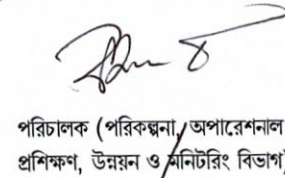 পরিচালক (পরিকল্পনা, অপারেশনাল
প্রশিক্ষণ, উন্নয়ন ও মনিটরিং বিভাগ)